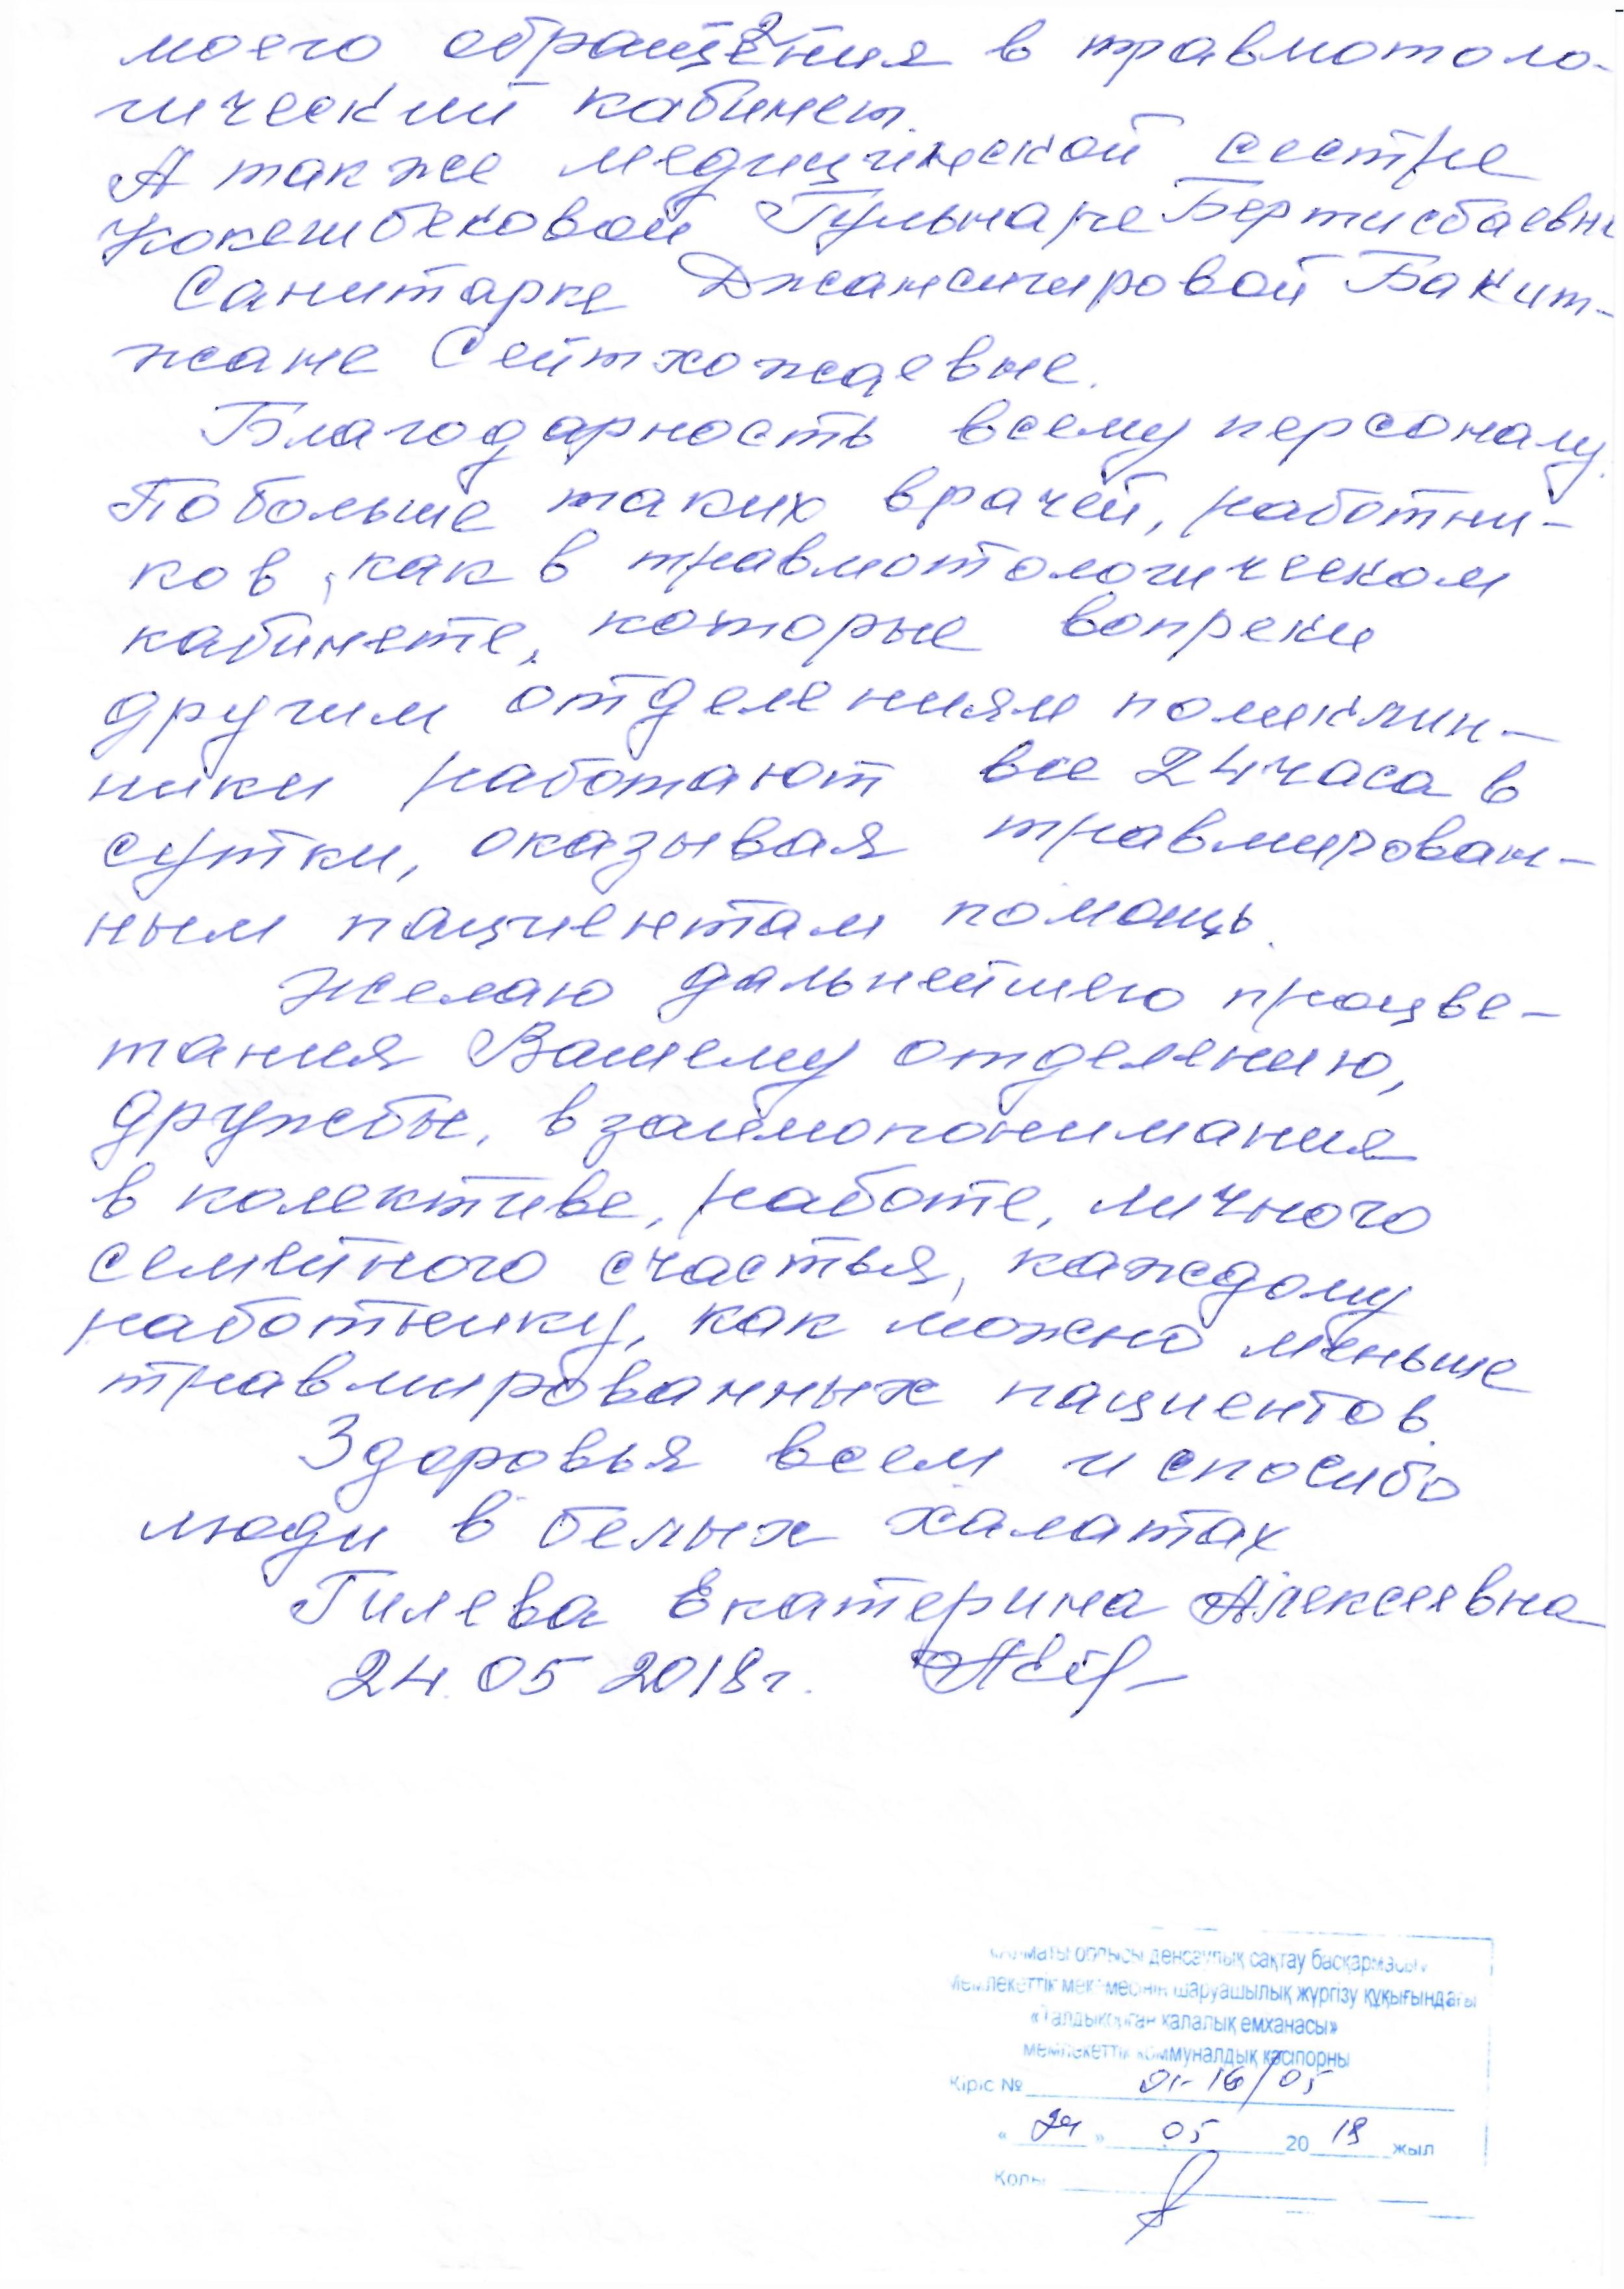 моего обращения в травмотоло-
гический кабинет.
А также медицинской сестре
Укокешбековой Гульнаре Бертисбаевне
Санитарке Джансигировой Бакит-
жане Сейтхожаевне.
Благодарность всему персоналу.
Побольше таких врачей, работни-
ков, как в травмотологическом
кабинете, которые вопреки
другим отделениям поликлин-
ники работают все 24 часа в
сутки, оказывая травмирован-
ным пациентам помощь.
Желаю дальнейшего процве-
тания Вашему отделению,
дружбы, взаимопонимания
в колективе, работе, личного
семейного счастья, каждому
работнику, как можно меньше
травмированных пациентов.
Здоровья всем и спосибо
люди в белых халатах
Гилева Екатерина Алексеевна
24.05 2018г.
«Алматы облысы денсаулық сақтау басқармасы»
мемлекеттік мекемесінің шаруашылық жүргізу құқығындағы
«Талдықорған қалалық емханасы»
мемлекеттік коммуналдық кәсіпорны
Кіріс № 01-16/05
« 24 » 05 20 18 жыл
Қолы